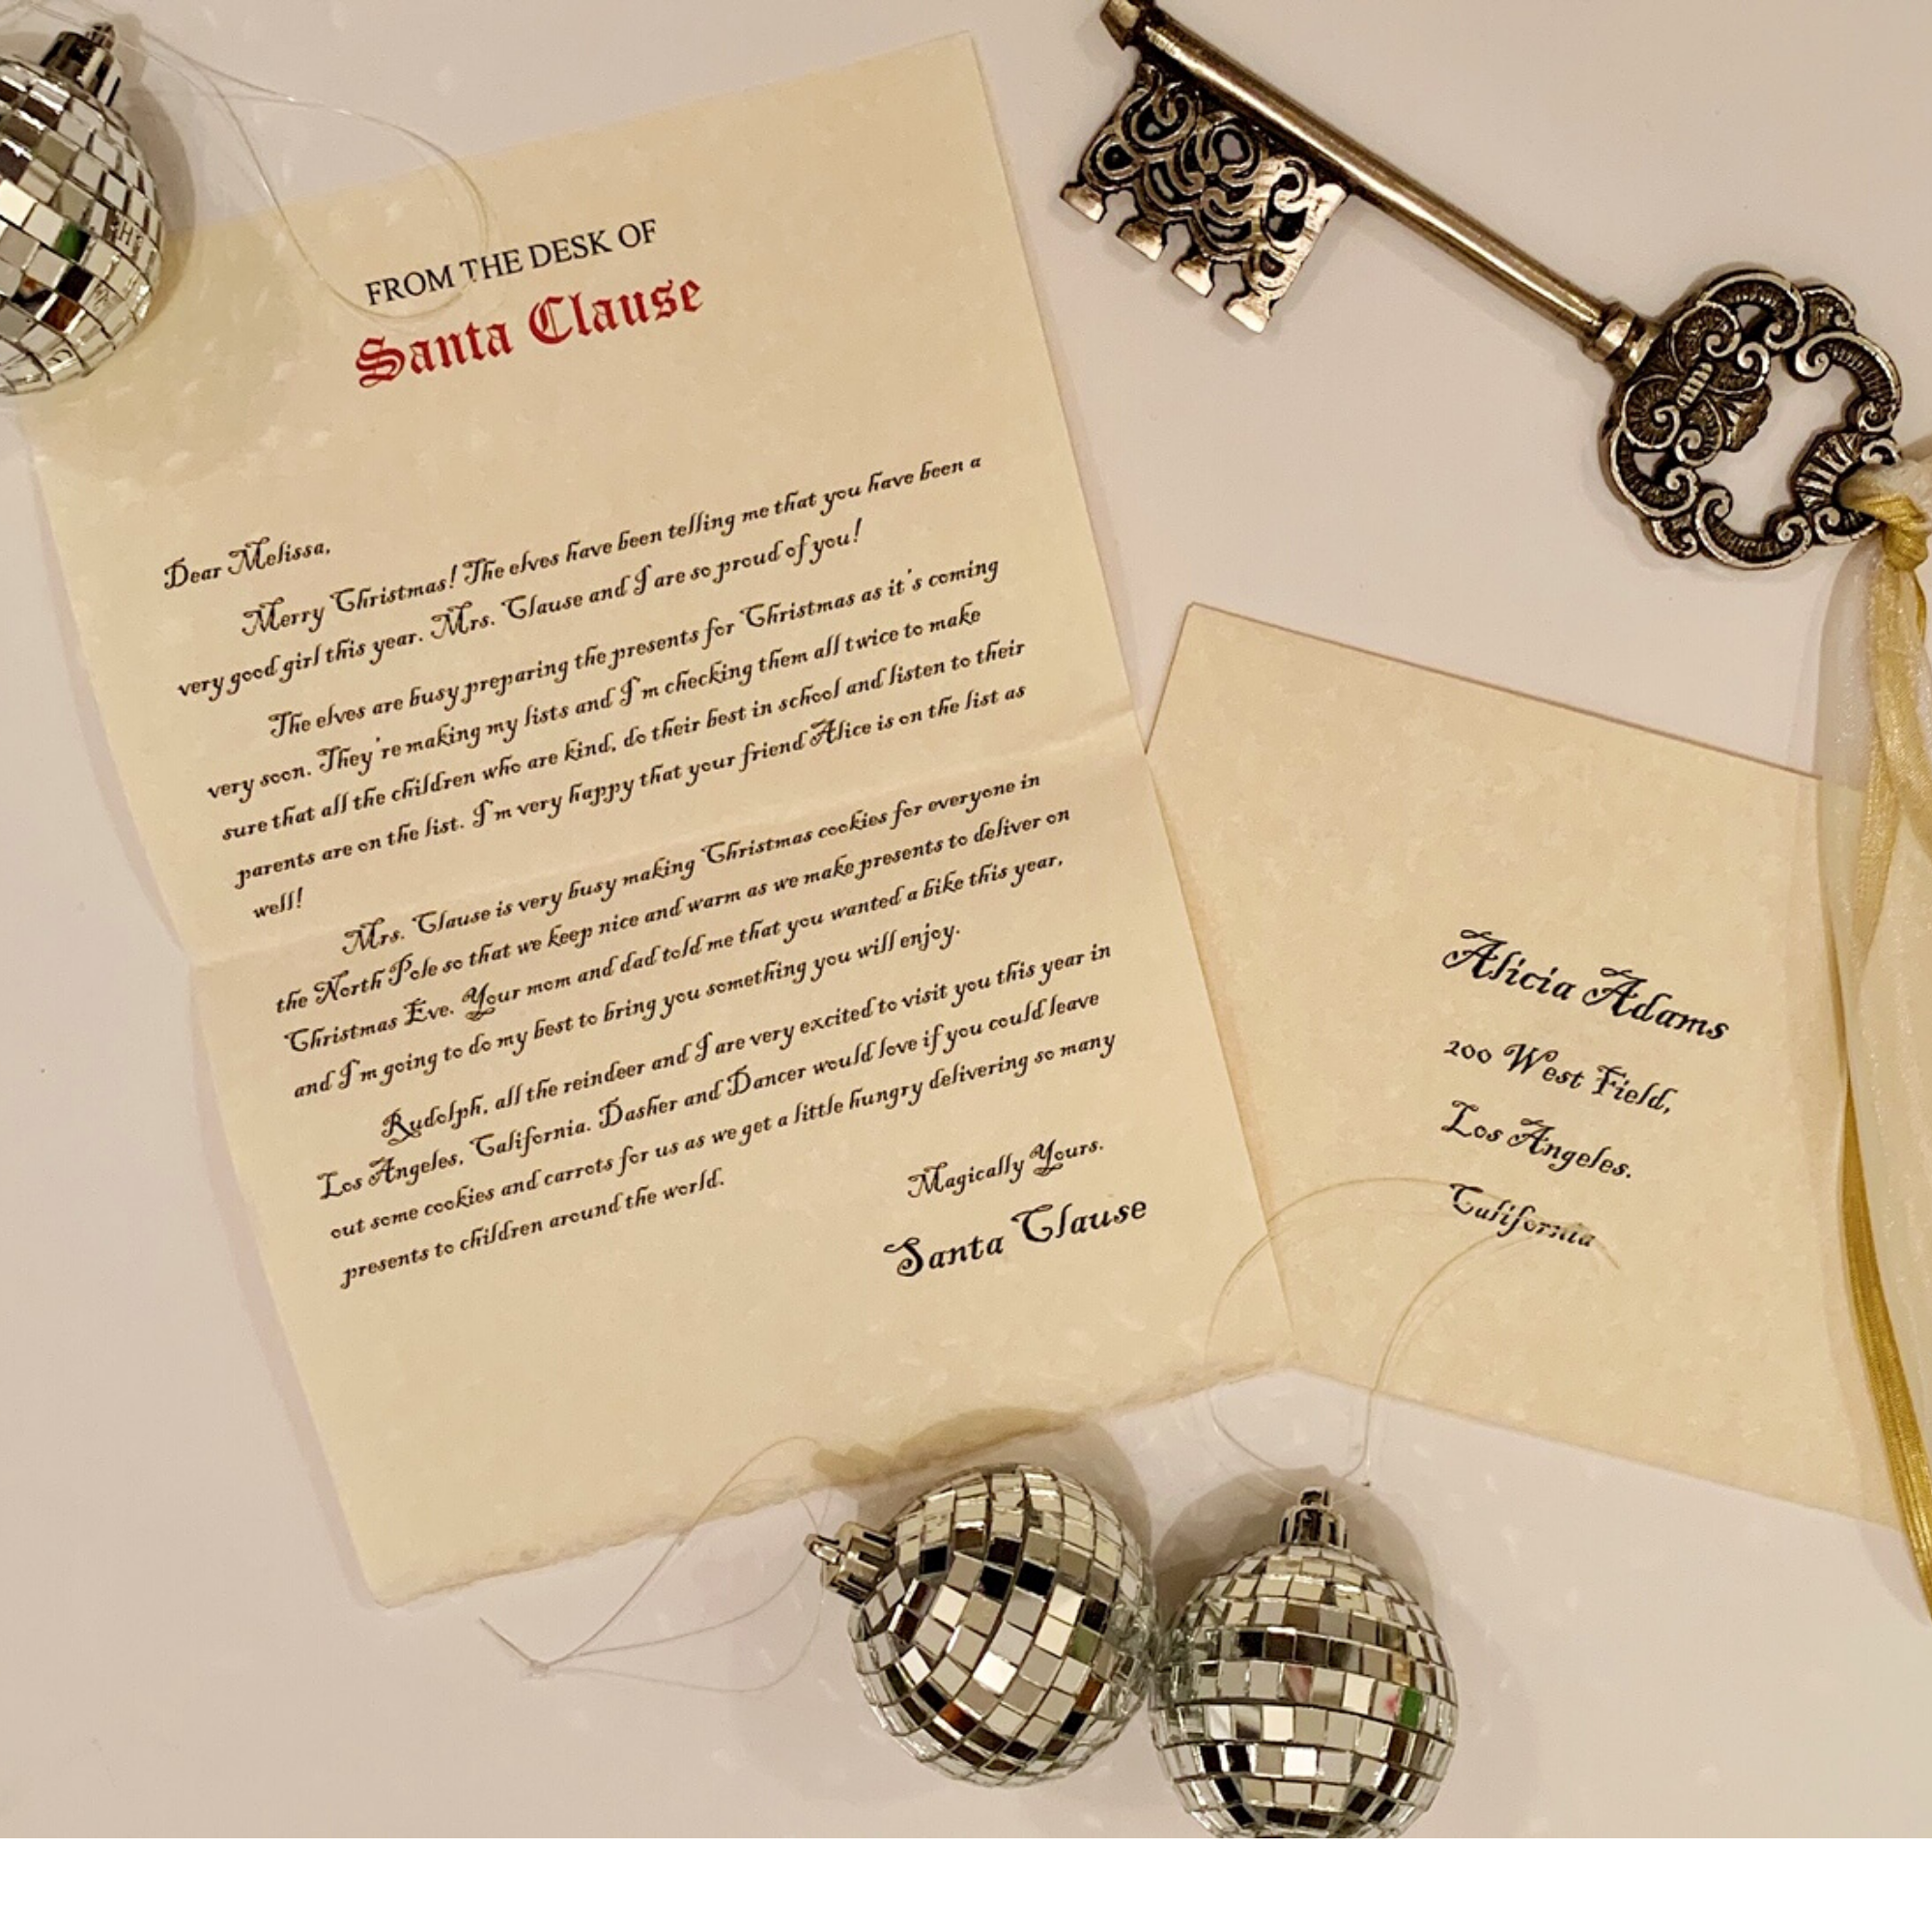 FROM THE DESK OF
Santa Clause
Dear Melissa,
Merry Christmas! The elves have been telling me that you have been a
very good girl this year. Mrs. Clause and I are so proud of you!
The elves are busy preparing the presents for Christmas as it's coming
very soon. They're making my lists and I'm checking them all twice to make
sure that all the children who are kind, do their best in school and listen to their
parents are on the list. I'm very happy that your friend Alice is on the list as
well!
Mrs. Clause is very busy making Christmas cookies for everyone in
the North Pole so that we keep nice and warm as we make presents to deliver on
Christmas Eve. Your mom and dad told me that you wanted a bike this year,
and I'm going to do my best to bring you something you will enjoy.
Rudolph, all the reindeer and I are very excited to visit you this year in
Los Angeles, California. Dasher and Dancer would love if you could leave
out some cookies and carrots for us as we get a little hungry delivering so many
presents to children around the world.
Magically Yours,
Santa Clause
Alicia Adams
200 West Field,
Los Angeles,
California